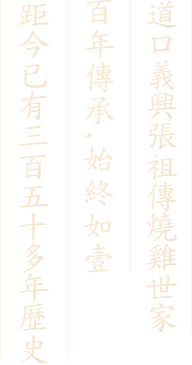 道口義興張祖傳燒雞世家
百年傳承，始終如壹
距今已有三百五十多年歷史